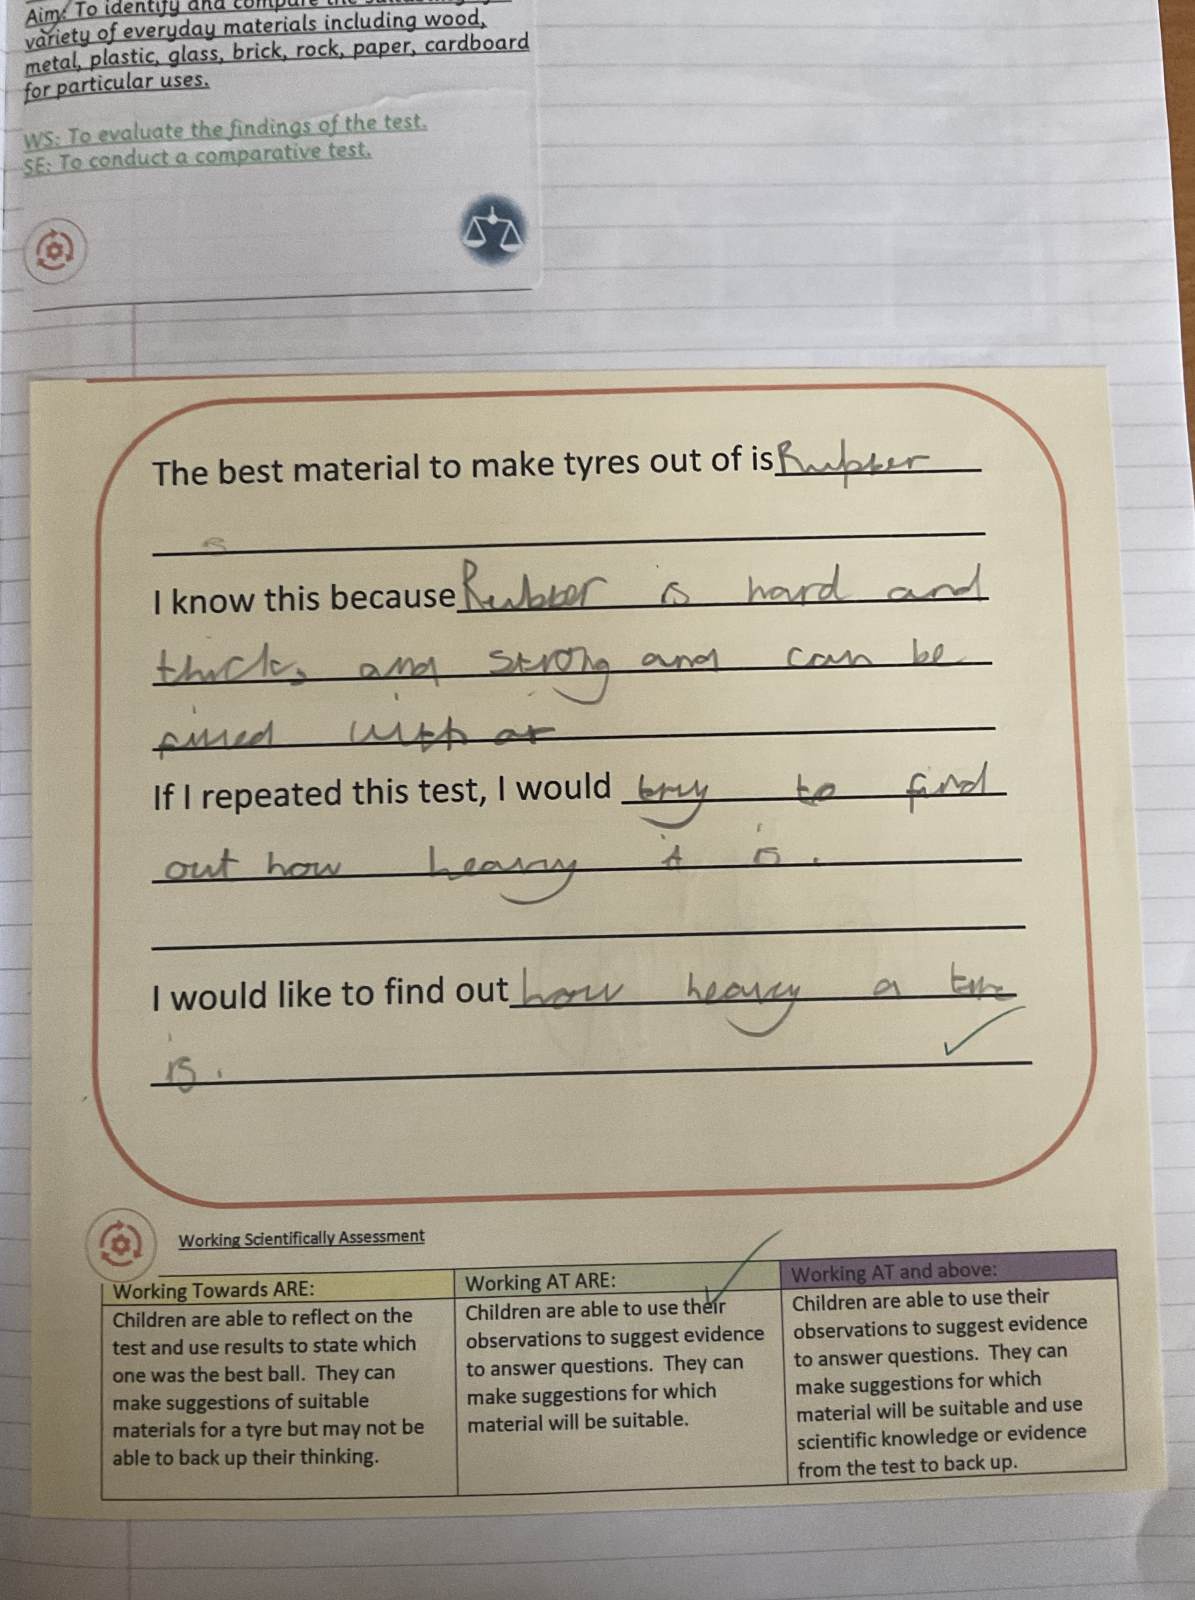 Aim: To identify and compare the
variety of everyday materials including wood,
metal, plastic, glass, brick, rock, paper, cardboard
for particular uses.
WS: To evaluate the findings of the test.
SE: To conduct a comparative test.
The best material to make tyres out of is Rubber
I know this because Rubber is hard and
thick, and strong and can be
filled with ar
If I repeated this test, I would try to find
out how heavy it is.
I would like to find out how heavy a tire
is.
Working Scientifically Assessment
Working Towards ARE:
Children are able to reflect on the
test and use results to state which
one was the best ball. They can
make suggestions of suitable
materials for a tyre but may not be
able to back up their thinking.
Working AT ARE:
Children are able to use their
observations to suggest evidence
to answer questions. They can
make suggestions for which
material will be suitable.
Working AT and above:
Children are able to use their
observations to suggest evidence
to answer questions. They can
make suggestions for which
material will be suitable and use
scientific knowledge or evidence
from the test to back up.